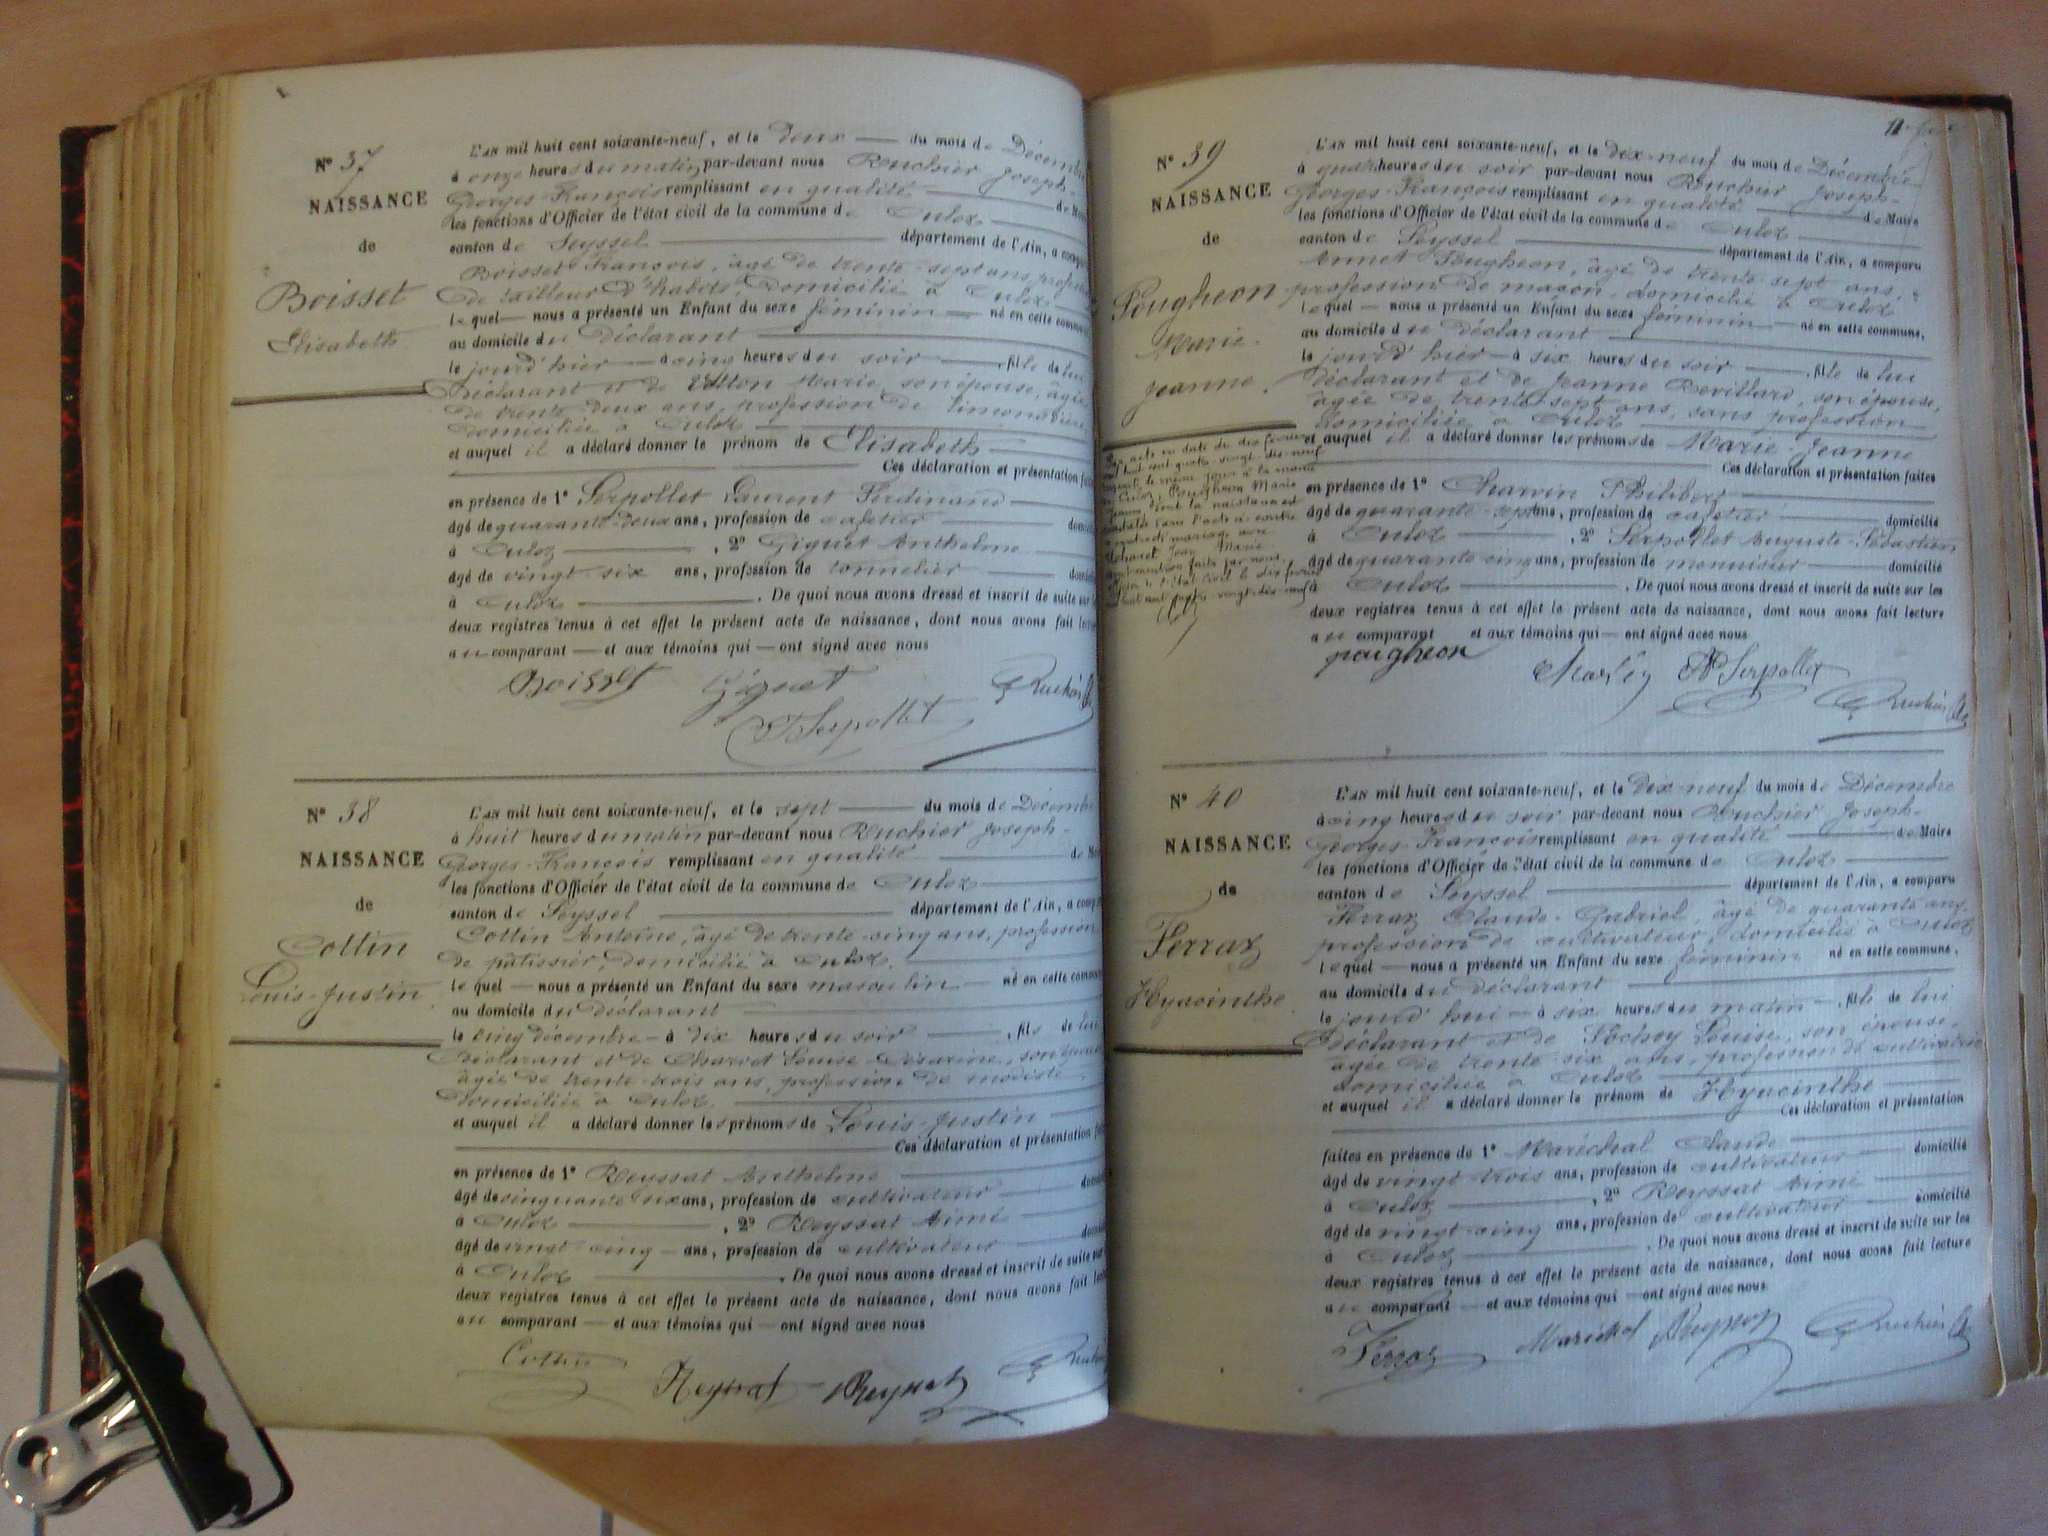 N° 37
NAISSANCE
de
Boisset
Elisabeth
L'AN mil huit cent soixante-neuf, et le deux du mois de Décembre
à onze heures du matin par-devant nous Ruchier Joseph-
Georges-François remplissant en qualité de
les fonctions d'Officier de l'état civil de la commune de Culoz
canton de Seyssel département de l'Ain, a comparu
Boisset François, âgé de trente-sept ans, profession
de tailleur d'habits, domicilié à Culoz
lequel nous a présenté un Enfant du sexe féminin né en cette commune
au domicile du déclarant
le jourd'hier à cinq heures du soir, fille de lui
déclarant et de Marie, son épouse, âgée
de trente-deux ans, profession de limonadière
domiciliée à Culoz
et auquel il a déclaré donner le prénom de Elisabeth
Ces déclaration et présentation faites
en présence de 1° Serpollet Laurent Ferdinand
âgé de quarante-deux ans, profession de cafetier
à Culoz, 2° Giguet Anthelme
âgé de vingt-six ans, profession de tonnelier
à Culoz. De quoi nous avons dressé et inscrit de suite sur les
deux registres tenus à cet effet le présent acte de naissance, dont nous avons fait lecture
au comparant et aux témoins qui ont signé avec nous
Boisset Giguet Ruchier
Serpollet
N° 38
NAISSANCE
de
Cottin
Louis-Justin
L'AN mil huit cent soixante-neuf, et le sept du mois de Décembre
à huit heures du matin par-devant nous Ruchier Joseph-
Georges-François remplissant en qualité de
les fonctions d'Officier de l'état civil de la commune de Culoz
canton de Seyssel département de l'Ain, a comparu
Cottin Antoine, âgé de trente-cinq ans, profession
de pâtissier, domicilié à Culoz.
lequel nous a présenté un Enfant du sexe masculin né en cette commune
au domicile du déclarant
le cinq décembre à dix heures du soir, fils de lui
déclarant et de Charvet Louise Césarine, son épouse
âgée de trente-trois ans, profession de modiste
domiciliée à Culoz.
et auquel il a déclaré donner les prénoms de Louis-Justin
Ces déclaration et présentation
en présence de 1° Reyssat Anthelme
âgé de cinquante ans, profession de cultivateur
à Culoz, 2° Reyssat Aimé
âgé de vingt-cinq ans, profession de cultivateur
à Culoz. De quoi nous avons dressé et inscrit de suite sur
deux registres tenus à cet effet le présent acte de naissance, dont nous avons fait lecture
au comparant et aux témoins qui ont signé avec nous
Cottin Reyssat Reyssat Ruchier
N° 39
NAISSANCE
de
Pougheon
Marie-
Jeanne.
Par acte en date du dix février
mil huit cent quatre-vingt-dix-neuf
le même jour à la mairie
de Culoz, Pougheon Marie
Jeanne, dont la naissance est
constatée par l'acte ci-contre
a contracté mariage avec
Jean Marie
Mention faite par nous,
de l'état civil le dix février
mil huit cent quatre-vingt-dix-neuf
L'AN mil huit cent soixante-neuf, et le dix-neuf du mois de Décembre
à quatre heures du soir par-devant nous Ruchier Joseph-
Georges-François remplissant en qualité de Maire
les fonctions d'Officier de l'état civil de la commune de Culoz
canton de Seyssel département de l'Ain, a comparu
Annet Pougheon, âgé de trente-sept ans,
profession de maçon, domicilié à Culoz
lequel nous a présenté un Enfant du sexe féminin né en cette commune,
au domicile du déclarant
le jourd'hier à six heures du soir, fille de lui
déclarant et de Jeanne Devillard, son épouse,
âgée de trente-sept ans, sans profession
domiciliée à Culoz
et auquel il a déclaré donner les prénoms de Marie-Jeanne
Ces déclaration et présentation faites
en présence de 1° Charvin Philibert
âgé de quarante-sept ans, profession de cafetier domicilié
à Culoz, 2° Serpollet Auguste-Sébastien
âgé de quarante-cinq ans, profession de menuisier domicilié
à Culoz. De quoi nous avons dressé et inscrit de suite sur les
deux registres tenus à cet effet le présent acte de naissance, dont nous avons fait lecture
au comparant et aux témoins qui ont signé avec nous
pougheon Serpollet
Ruchier
N° 40
NAISSANCE
de
Ferraz
Hyacinthe
L'AN mil huit cent soixante-neuf, et le dix-neuf du mois de Décembre
à cinq heures du soir par-devant nous Ruchier Joseph-
Georges-François remplissant en qualité de Maire
les fonctions d'Officier de l'état civil de la commune de Culoz
canton de Seyssel département de l'Ain, a comparu
Ferraz Claude-Gabriel, âgé de quarante ans,
profession de cultivateur, domicilié à Culoz
lequel nous a présenté un Enfant du sexe féminin né en cette commune,
au domicile du déclarant
le jourd'hui à six heures du matin, fille de lui
déclarant et de Louise, son épouse,
âgée de trente-six ans, profession de cultivatrice
domiciliée à Culoz
et auquel il a déclaré donner le prénom de Hyacinthe
Ces déclaration et présentation
faites en présence de 1° Maréchal Claude domicilié
âgé de vingt-trois ans, profession de cultivateur
à Culoz, 2° Reyssat Aimé domicilié
âgé de vingt-cinq ans, profession de cultivateur
à Culoz. De quoi nous avons dressé et inscrit de suite sur les
deux registres tenus à cet effet le présent acte de naissance, dont nous avons fait lecture
au comparant et aux témoins qui ont signé avec nous
Ferraz Maréchal Reyssat Ruchier